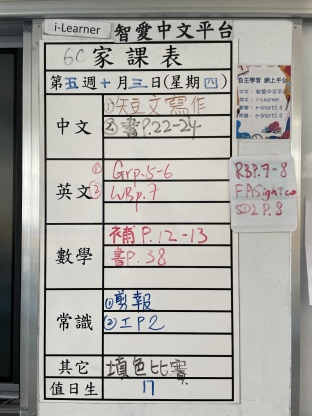 i-Learner 智愛中文平台
6C 家課表
第五週十月三日(星期四)
中文
①短文寫作
②書P.22-24
英文
①Grp.5-6
②WBp.7
數學
補P.12-13
書P.38
常識
①剪報
②工P2
其它 填色比賽
值日生 17
自主學習 網上平台
中文: 智愛中文平台
英文: i-Learner
數學: e-Smart3.0
常識: e-Smart3.0
RBP.7-8
SD2 P.8